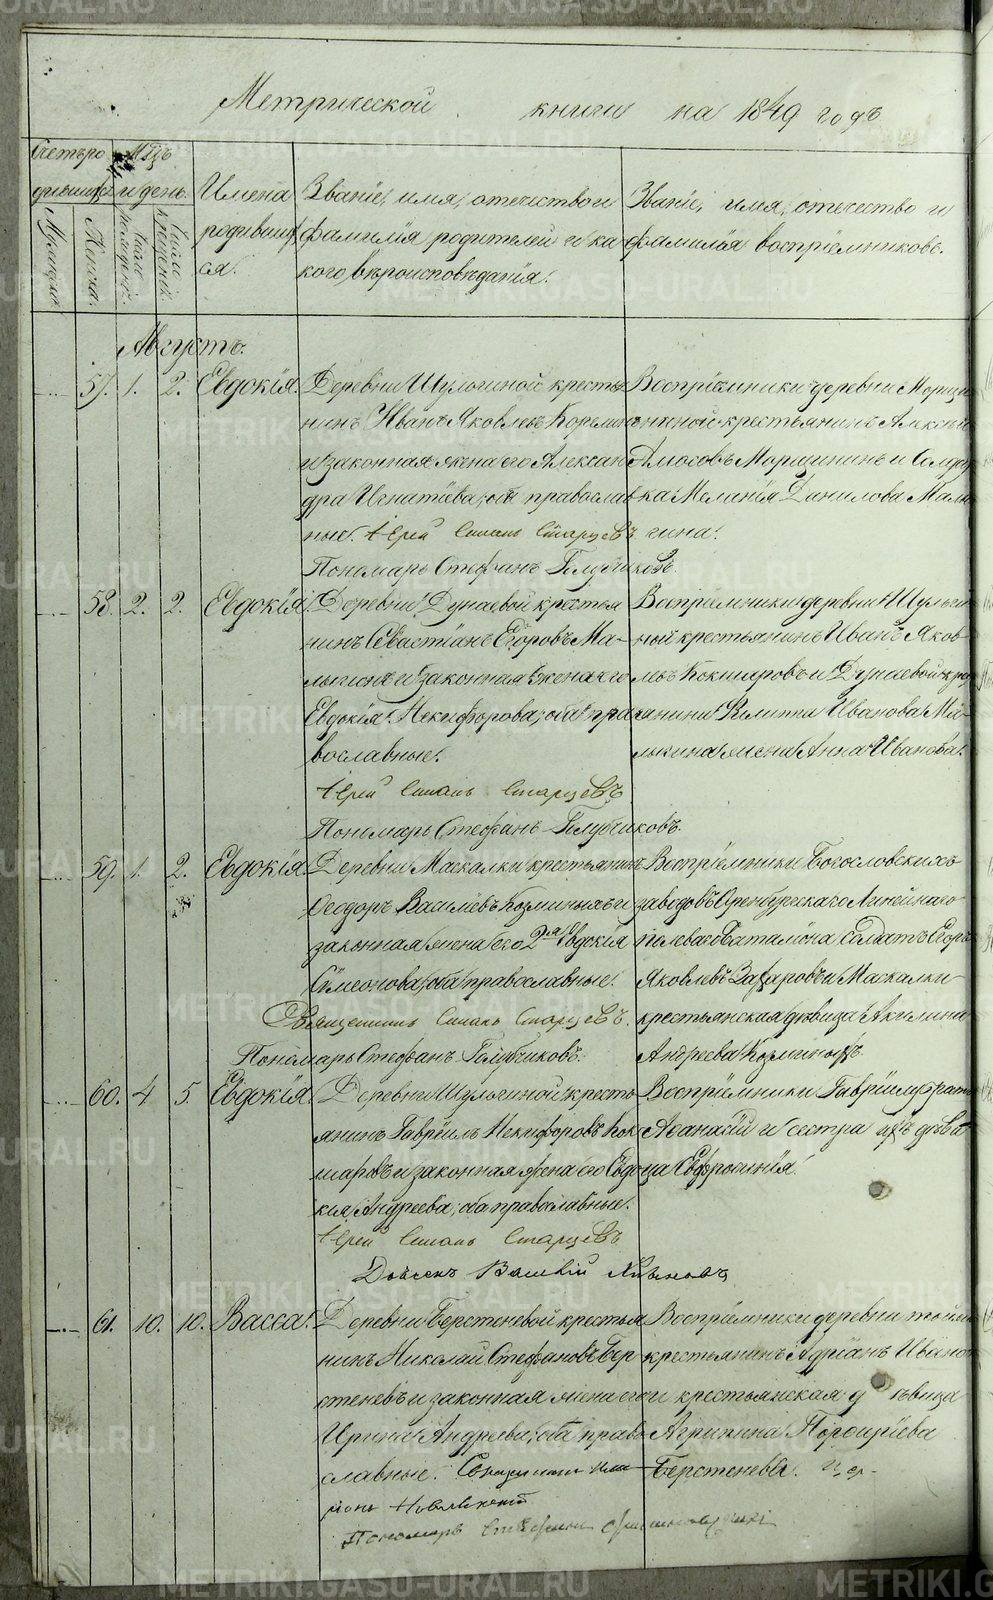 Метрической книги на 1849 годъ
Счетъ родившихся
Мѣсяцъ и день.
Мужеска.
Женска.
рожденія.
крещенія.
Имена родившихся.
Званіе, имя, отечество и
фамилія родителей и ка
кого вѣроисповѣданія.
Званіе, имя, отечество и
фамилія воспріемниковъ.
Августъ.
57. 1. 2. Евдокія.
Деревни Шулгиной кресть
нинъ Иванъ Яковлевъ
и законная жена его Алексан
дра Игнатіева, оба православ
ные. Іерей Симонъ Старцевъ
Пономарь Стефанъ Голубчиковъ.
Воспріемники деревни
крестьянинъ Алексѣй
Амосовъ Морщининъ и Солда
ка Меланія Данилова Малы
гина.
58. 2. 2. Евдокія.
Деревни Дунаевой крестья
нинъ Севастіанъ Егоровъ Ма-
лыгинъ и законная жена его
Евдокія Никифорова, оба пра
вославные.
Іерей Симонъ Старцевъ
Пономарь Стефанъ Голубчиковъ.
Воспріемники деревни Шульги
ной крестьянинъ Иванъ Яков
левъ Кокшаровъ и Дунаевой
Филиппа Иванова Ма
лыгина жена Анна Иванова.
59. 1. 2. Евдокія.
Деревни Маскалки крестьянинъ
Феодоръ Васильевъ Козминыхъ и
законная жена его 2я Евдокія
Симеонова, оба православные.
Священникъ Симонъ Старцевъ.
Пономарь Стефанъ Голубчиковъ.
Воспріемники Богословскихъ
заводовъ Оренбургскаго Линейнаго
баталіона солдатъ Егоръ
Яковлевъ Захаровъ и Маскалки
крестьянская дѣвица Акилина
Андреева Козминыхъ.
60. 4. 5. Евдокія.
Деревни Шулгиной кресть
янинъ Гавріилъ Никифоровъ Кок
шаровъ и законная жена его Евдо
кія Андреева, оба православные.
Іерей Симонъ Старцевъ
Василій
Воспріемники Гавріилу братъ
Аѳанасій и сестра ихъ дѣви
ца Евфросинія.
61. 10. 10. Васса.
Деревни Берстеневой крестья
нинъ Николай Стефановъ Бер
стеневъ и законная жена его
Ирина Андреева, оба право
славные.
Пономарь
Воспріемники деревни той же
крестьянинъ Адріанъ Ивано
и крестьянская дѣвица
Агрипина Порфиріева
Берстенева.
METRIKI.GASO-URAL.RU